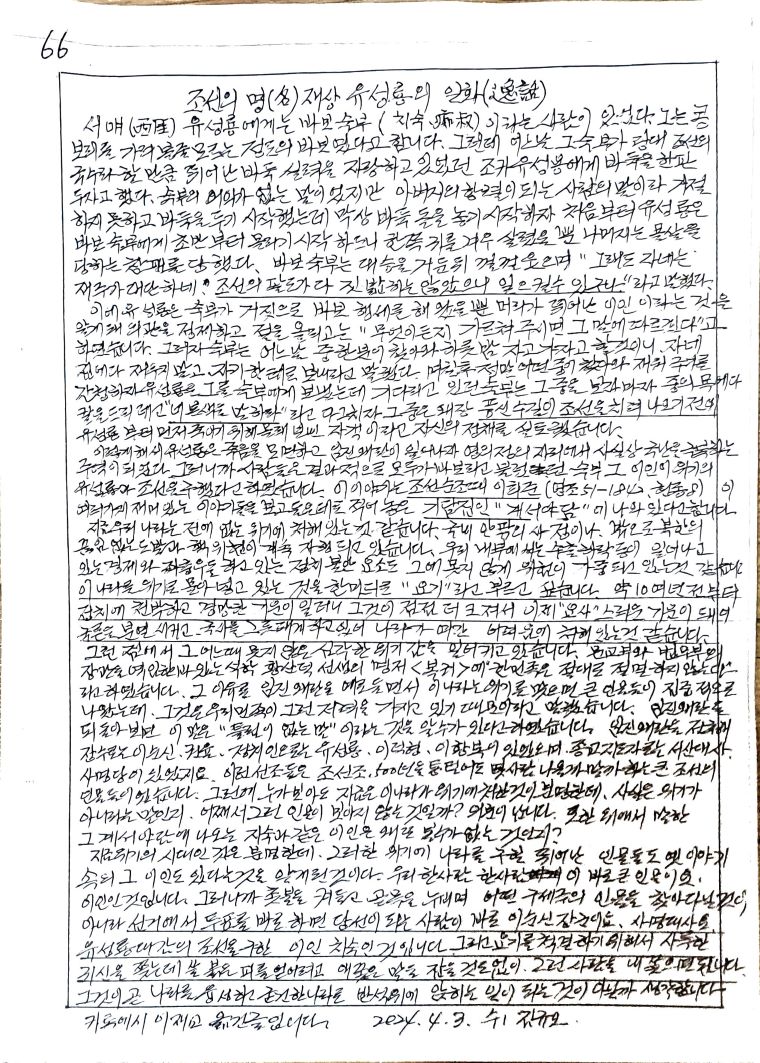 66
조선의 명(名)재상 유성룡의 일화(逸話)
서애(西厓) 유성룡에게는 바보숙부 (치숙, 痴叔) 이라는 사람이 있었다. 그는 콩
보리를 가려 볼줄 모르는 정도의 바보였다고 합니다. 그런데 어느날 그 숙부가 당대 조선의
국수라 할 만큼 뛰어난 바둑 실력을 자랑하고 있었던 조카 유성룡에게 바둑을 한판
두자고 했다. 숙부의 어이가 없는 말이었지만 아버지의 항렬이 되는 사람의 말이라 거절
하지 못하고 바둑을 두기 시작했는데 막상 바둑 돌을 놓기 시작하자 처음부터 유성룡은
바보 숙부에게 초반부터 몰리기 시작 하드니 한쪽 귀를 겨우 살렸을 뿐 나머지는 몰살을
당하는 참패를 당했다. 바보 숙부는 대승을 거둔뒤 껄껄 웃으며 "그래도 자네는
재주가 대단하네. 조선의 팔도가 다 짓밟히는 않았으니 일으킬수 있구나" 라고 말했다.
이에 유성룡은 숙부가 거짓으로 바보 행세를 해 왔을 뿐 머리가 뛰어난 이인 이라는 것을
알게 돼 의관을 정제하고 절을 올리고는 "무엇이든지 가르쳐 주시면 그 말에 따르겠다"고
하였습니다. 그러자 숙부는 어느날 중 한분이 찾아와 하룻밤 자고 가자고 할것이니. 자네
집에다 재우지 말고 자기한테로 보내라고 말했다. 며칠후 정말 어떤 중이 찾아와 재워 주기를
간청하자 유성룡은 그를 숙부에게 보냈는데 기다리고 있던 숙부는 그 중을 보자 마자 중의 목에다
칼을 드리 대고 "네 본색을 말하라" 라고 다그치자 그 중은 돼장 풍신수길이 조선을 치려 나오기 전에
유성룡 부터 먼저 죽이기 위해 몰래 보낸 자객 이라고 자신의 정체를 실토 했습니다.
이렇게 해서 유성룡은 죽음을 모면하고 임진왜란이 일어나자 영의정의 자리에서 사실상 국난을 극복하는
주역이 되었다. 그러니까 사람들은 결과적으로 모두가 바보라고 불렀던 숙부 그 이인이 위기의
유성룡과 조선을 구했다고 하였습니다. 이 이야기는 조선 순조때 이희준 (영조51-1842, 헌종8) 이
여러가지 재미 있는 이야기들을 보고 들은데로 적어 놓은 기담집인 "계서야담"에 나와 있다고 합니다.
지금 우리나라는 전에 없는 위기에 처해 있는것 같습니다. 국내 안팎의 사정이나. 밖으로 북한의
끊임없는 도발과 핵 위협이 계속 자행 되고 있습니다. 우리 내부에서는 수출하락 등이 일어나고
있는 경제와 파급을 하고 있는 정치 불안 요소도 그에 못지 않게 위협이 가중 되고 있는것 같습니다.
이 나라를 위기로 몰아 넣고 있는 것을 한마디로 "요기" 라고 부르고 싶습니다. 약 10여년 전부터
정치에 천박하고 경망한 기운이 일더니 그것이 점점 더 커져서 이제 "요사" 스러운 기운이 돼어
국론을 분열 시키고. 국사를 그릇돼게 하고 있어 나라가 매우 어려움에 처해 있는것 같습니다.
그런 점에서 그 어느때 못지 않은 심각한 위기감을 일으키고 있습니다. 문교부와 법무부의
장관을 역임한 바 있는 석학 황산덕 선생의 명저 <복귀>에 "한민족은 절대로 절멸 하지 않는다"
라고 하였습니다. 그 이유로 임진왜란을 예로 들면서 이나라는 위기를 맞으면 큰 인물들이 집중적으로
나왔는데. 그것은 우리민족이 그런 저력을 가지고 있기 때문이라고 말했습니다. 임진왜란을
뒤 돌아 보면 이 말은 "틀림이 없는 말" 이라는 것을 알수가 있다고 하였습니다. 임진왜란을 전후해
장수로는 이순신. 권율. 정치인으로는 유성룡. 이덕형. 이항복이 있었으며. 종교지도자로는 서산대사.
사명당이 있었지요. 이런 선조들은 조선조. 500년을 통털어도 몇사람 나올까 말까 하는 큰 조선의
인물들이었습니다. 그런데 누가 보아도 지금은 이나라가 위기에 처한것이 분명한데. 사실은 위기가
아니라는 말인지. 어째서 그런 인물이 보이지 않는 것일까? 의문이 납니다. 또한 위에서 말한
그 계서야담에 나오는 치숙과 같은 이인은 왜 볼 수가 없는 것인지?
지금 위기의 시대인 것은 분명한데. 그러한 위기에 나라를 구할 뛰어난 인물들도 옛 이야기
속의 그 이인도 있다는 것을 알게 된 것이다. 우리 한사람 한사람이 바로 큰 인물이요.
이인인 것입니다. 그러니까 촛불을 켜들고 골목을 누비며 어떤 구세주의 인물을 찾아다닐 것이
아니라 선거에서 투표를 바로 하면 당선이 되는 사람이 바로 이순신 장군이요. 사명대사요
유성룡 대감의 조선을 구한 이인 치숙인 것입니다. 그리고 요기를 척결하기 위해서 사특한
귀신을 쫓는데 쓸 붉은 피를 얻으려고 애꿎은 말을 잡을 것도 없이. 그런 사람을 내 쫓으면 됩니다.
그것이 곧 나라를 융성하고 준건한 나라로 반석위에 앉히는 일이 되는 것이 아닌가 생각합니다.
카톡에서 이제고 옮긴글입니다. 2024. 4. 3. 수1 장규모